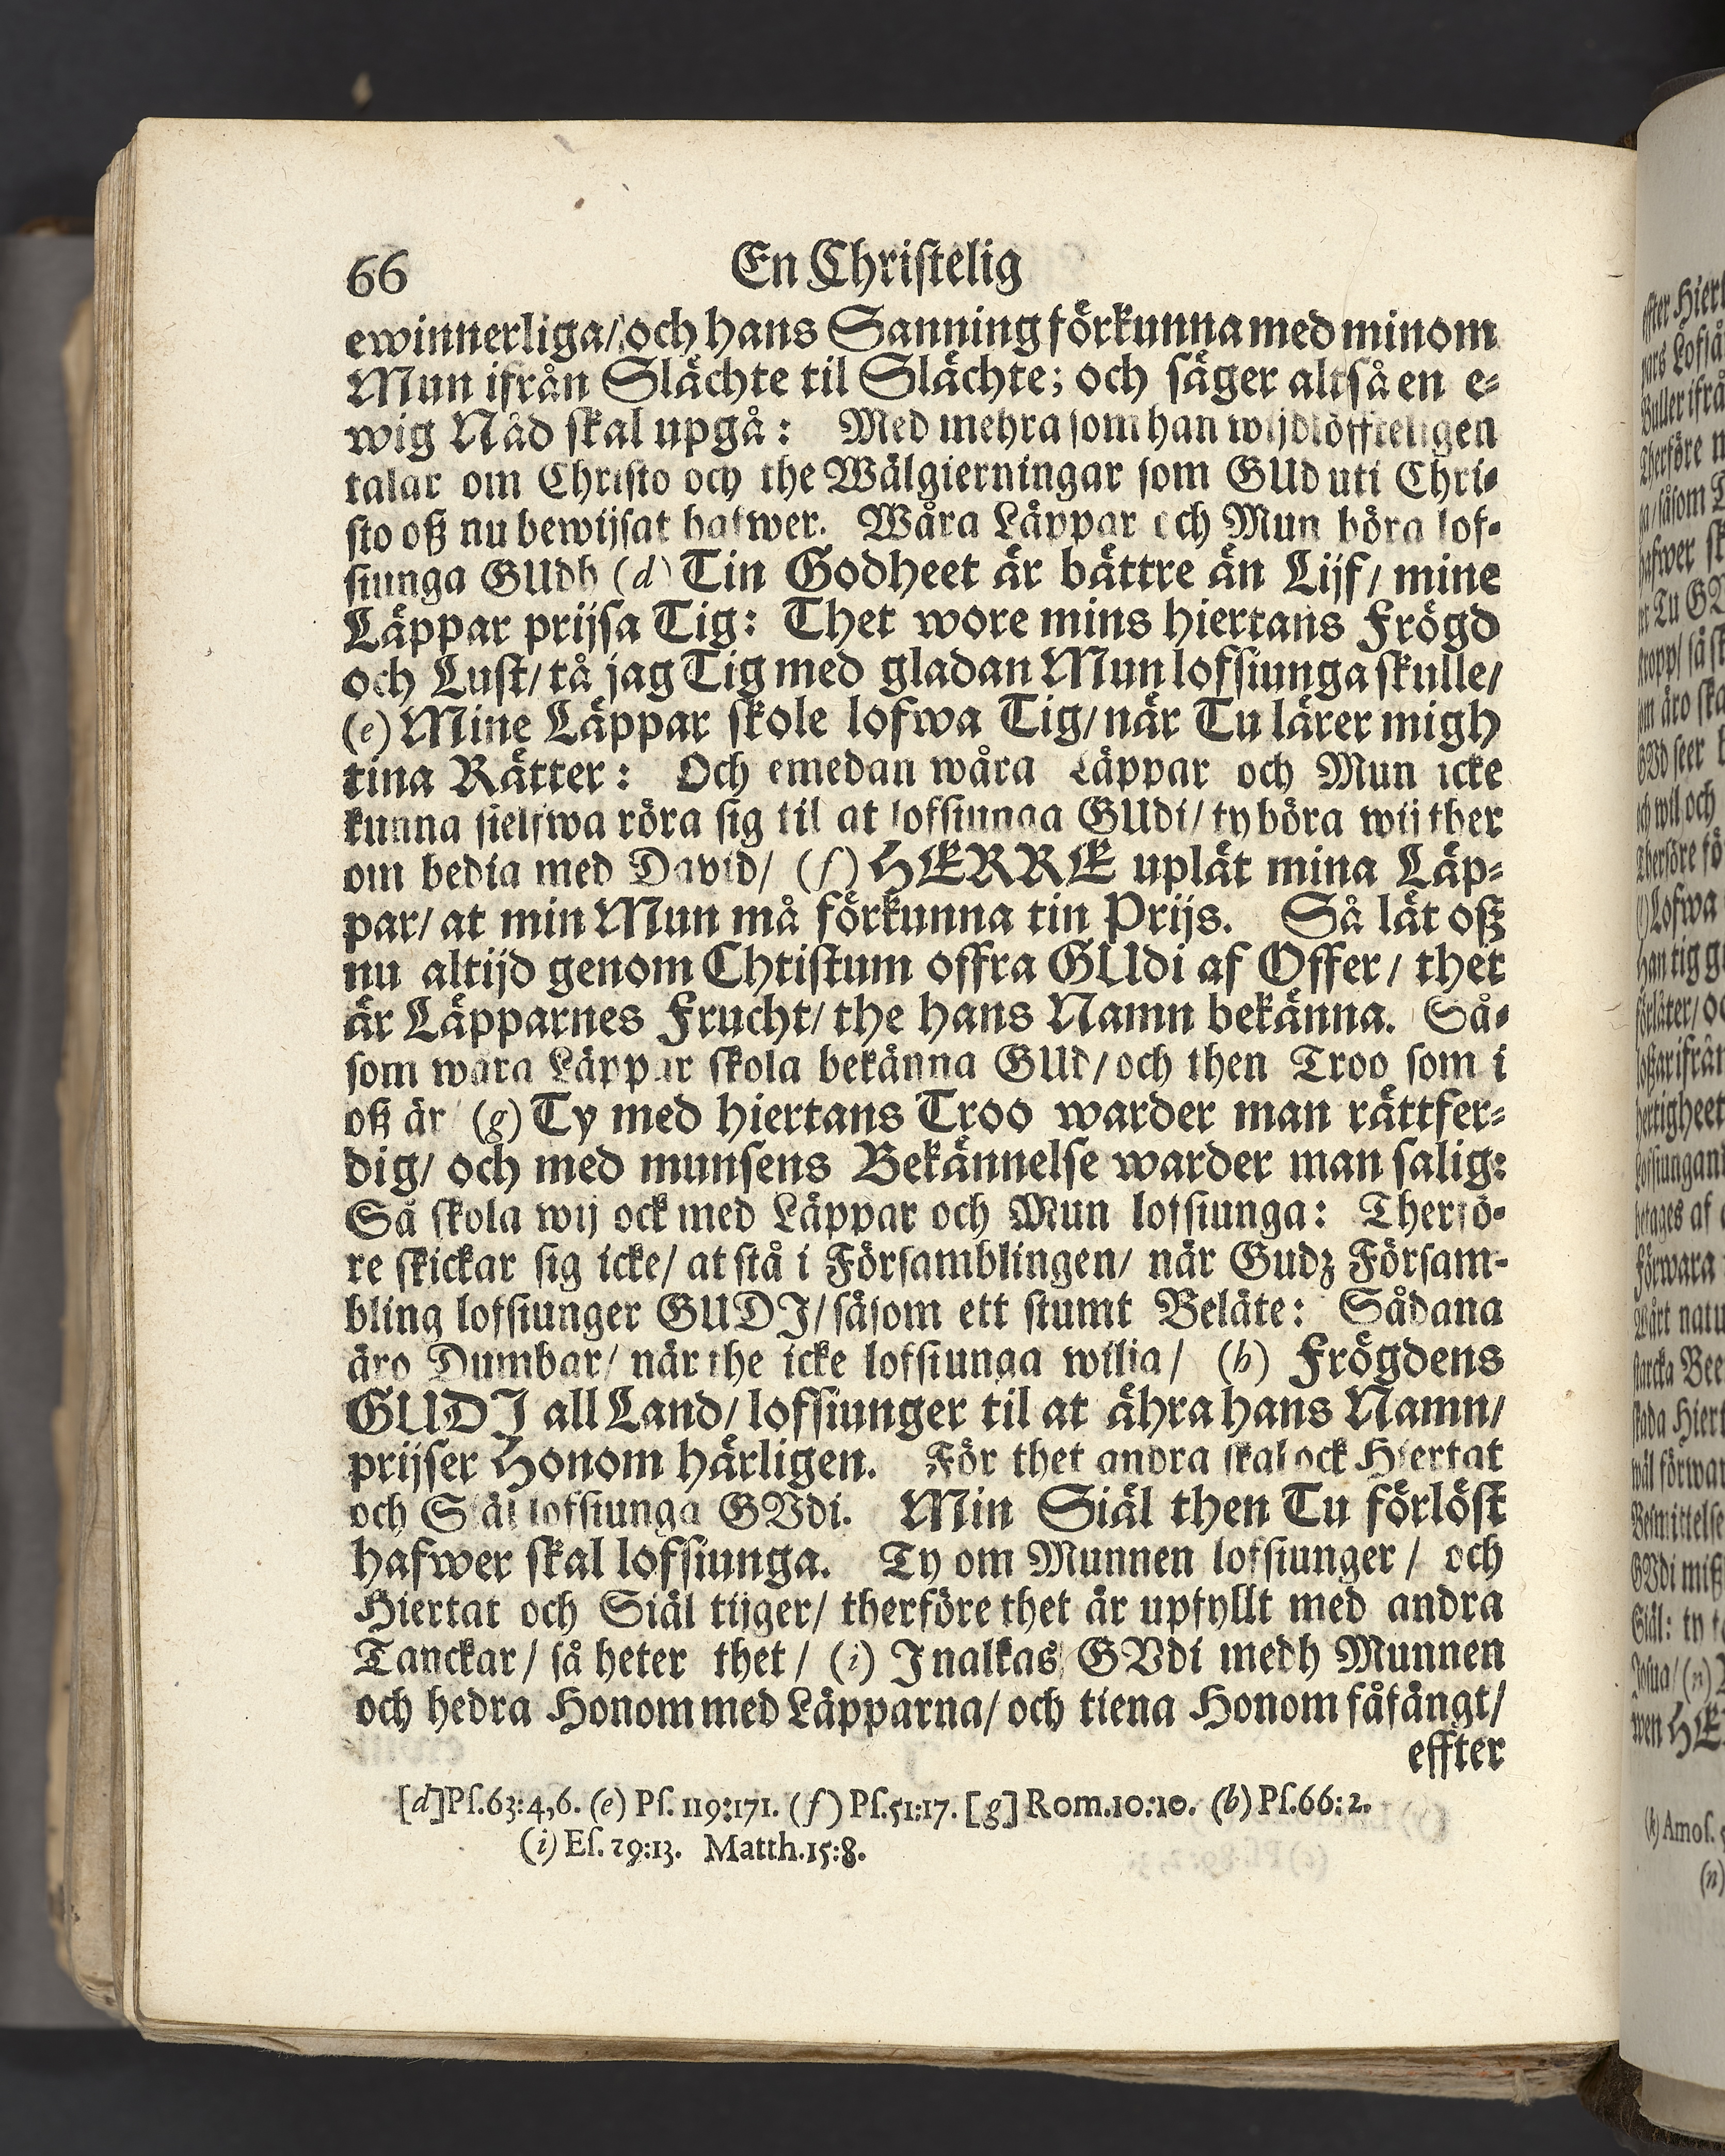 66 En Christelig
ewinnerliga/ och hans Sanning förkunna med minom
Mun ifrån Slächte til Slächte; och säger altså en e-
wig Nåd skal upgå: Med mehra som han wijdlöffteligen
talar om Christo och the Wälgierningar som GUd uti Chri-
sto oß nu bewijsat hafwer. Wåra Läppar och Mun böra lof-
siunga GUdh (d) Tin Godheet är bättre än Lijf/ mine
Läppar prijsa Tig: Thet wore mins hiertans Frögd
och Lust/ tå jag Tig med gladan Mun lofsiunga skulle/
(e) Mine Läppar skole lofwa Tig/ när Tu lärer migh
tina Rätter: Och emedan wåra Läppar och Mun icke
kunna sielfwa röra sig til at lofsiunga GUdi/ ty böra wij ther
om bedia med David/ (f) HERRE uplåt mina Läp-
par/ at min Mun må förkunna tin Prijs. Så lät oß
nu altijd genom Chtistum offra GUdi af Offer/ thet
är Läpparnes Frucht/ the hans Namn bekänna. Så-
som wåra Läppar skola bekänna GUd/ och then Troo som i
oß är (g) Ty med hiertans Troo warder man rättfer-
dig/ och med munsens Bekännelse warder man salig:
Så skola wij ock med Läppar och Mun lofsiunga: Therfö-
re skickar sig icke/ at stå i Församblingen/ när Gudz Försam-
bling lofsiunger GUDI/ såsom ett stumt Beläte: Sådana
äro Dumbar/ när the icke lofsiunga wilia/ (h) Frögdens
GUDI all Land/ lofsiunger til at ähra hans Namn/
prijser Honom härligen. För thet andra skal ock Hiertat
och Siäl lofsiunga GVdi. Min Siäl then Tu förlöst
hafwer skal lofsiunga. Ty om Munnen lofsiunger/ och
Hiertat och Siäl tijger/ therföre thet är upfyllt med andra
Tanckar/ så heter thet/ (i) Jnalkas GVdi medh Munnen
och hedra Honom med Läpparna/ och tiena Honom fåfängt/
effter
[d] Ps.63:4,6. (e) Ps. 119:171. (f) Ps.51:17. [g] Rom.10:10. (h) Ps.66:2.
(i) Es. 29:13. Matth.15:8.